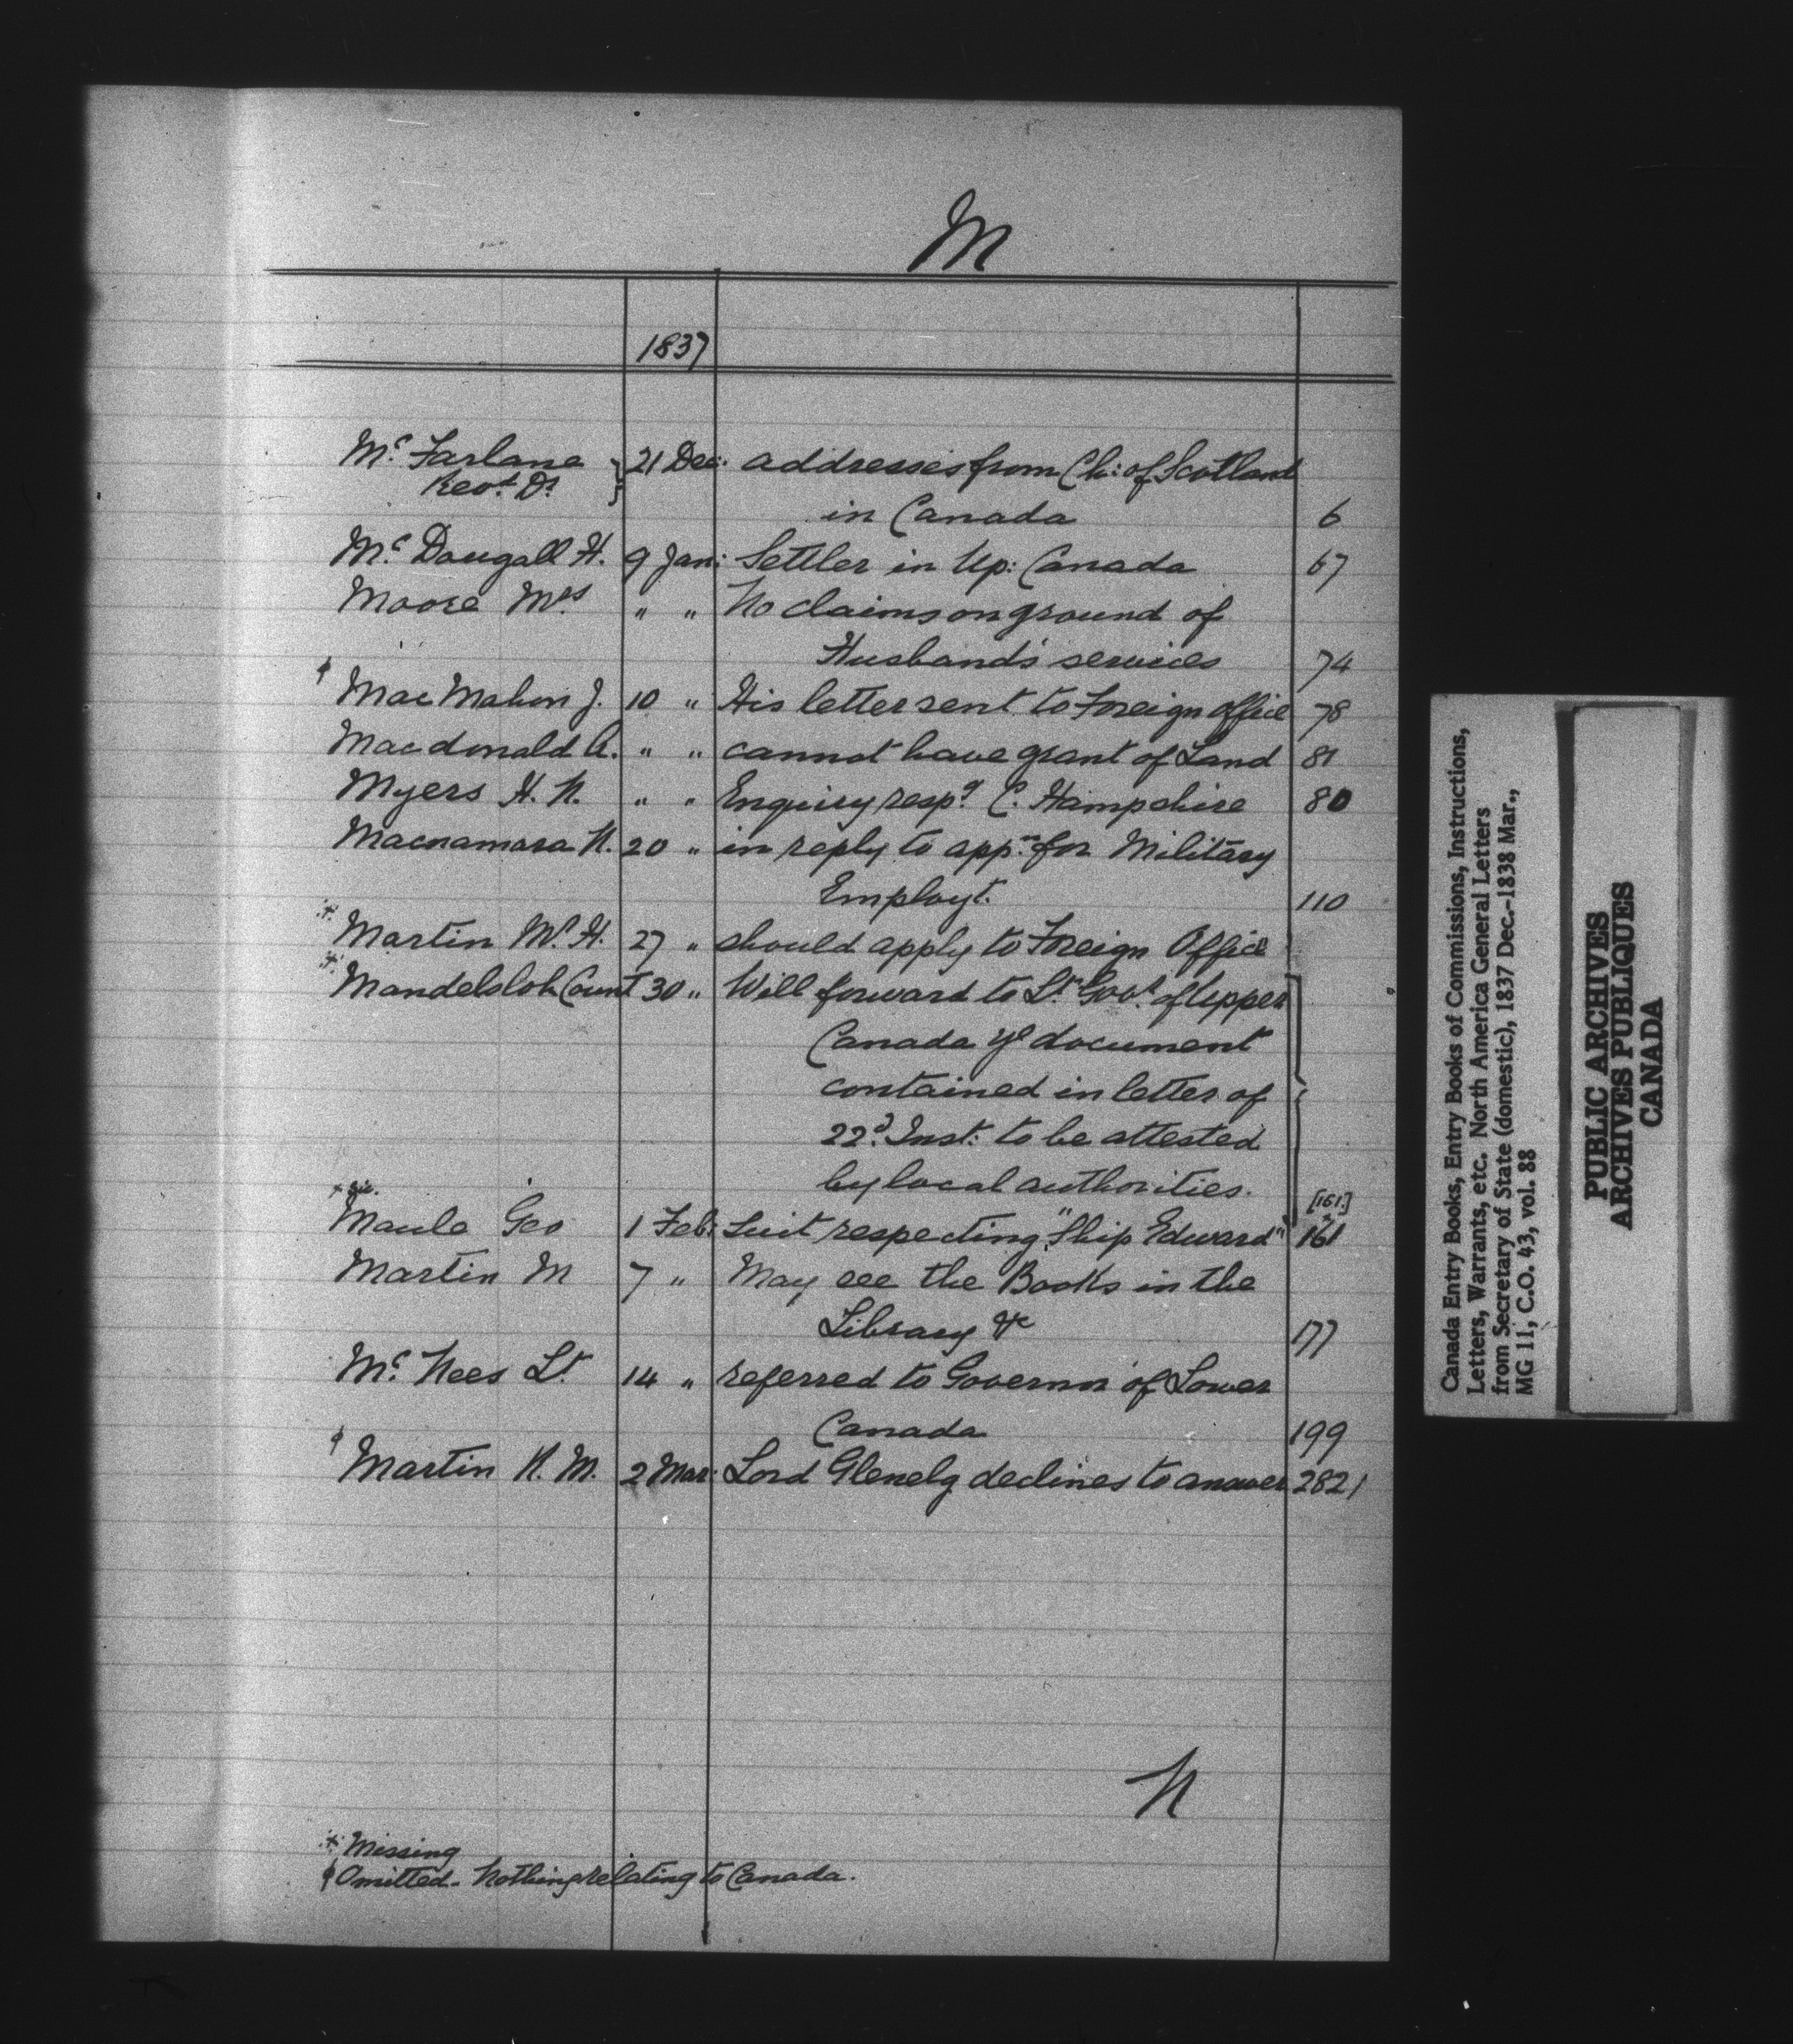 M
1837
Mc. Farlane } 21 Dec: addresses from Ch: of Scotland
Revd. Dr.
in Canada 6
Mc. Dougall H. 9 Jan: Settler in Up: Canada 67
Moore Mrs " " No claims on ground of
Husband's services 74
ϕ Mac Mahon J. 10 " His letter sent to Foreign office 78
Macdonald A. " " cannot have grant of Land 81
Myers H. N. " " Enquiry respg C. Hampshire 80
Macnamara N. 20 " in reply to appn. for Military
Employt. 110
+ Martin Mr. H. 27 " should apply to Foreign Office
+ Mandelsloh Count 30 " Will forward to Lt. Govr. of Upper
Canada ye document
contained in letter of
22d. Inst: to be attested
by local authorities.
+ sic. [161.]
Maule Geo 1 Feb: Suit respecting "Ship Edward" 161
Martin M 7 " May see the Books in the
Library &c 177
Mc. Nees Lt. 14 " referred to Governor of Lower
Canada 199
ϕ Martin R. M. 2 Mar: Lord Glenelg declines to answer 282
N
+ Missing
ϕ Omitted - Nothing relating to Canada.
Canada Entry Books, Entry Books of Commissions, Instructions,
Letters, Warrants, etc. North America General Letters
from Secretary of State (domestic), 1837 Dec.-1838 Mar.,
MG 11, C.O. 43, vol. 88
PUBLIC ARCHIVES
ARCHIVES PUBLIQUES
CANADA